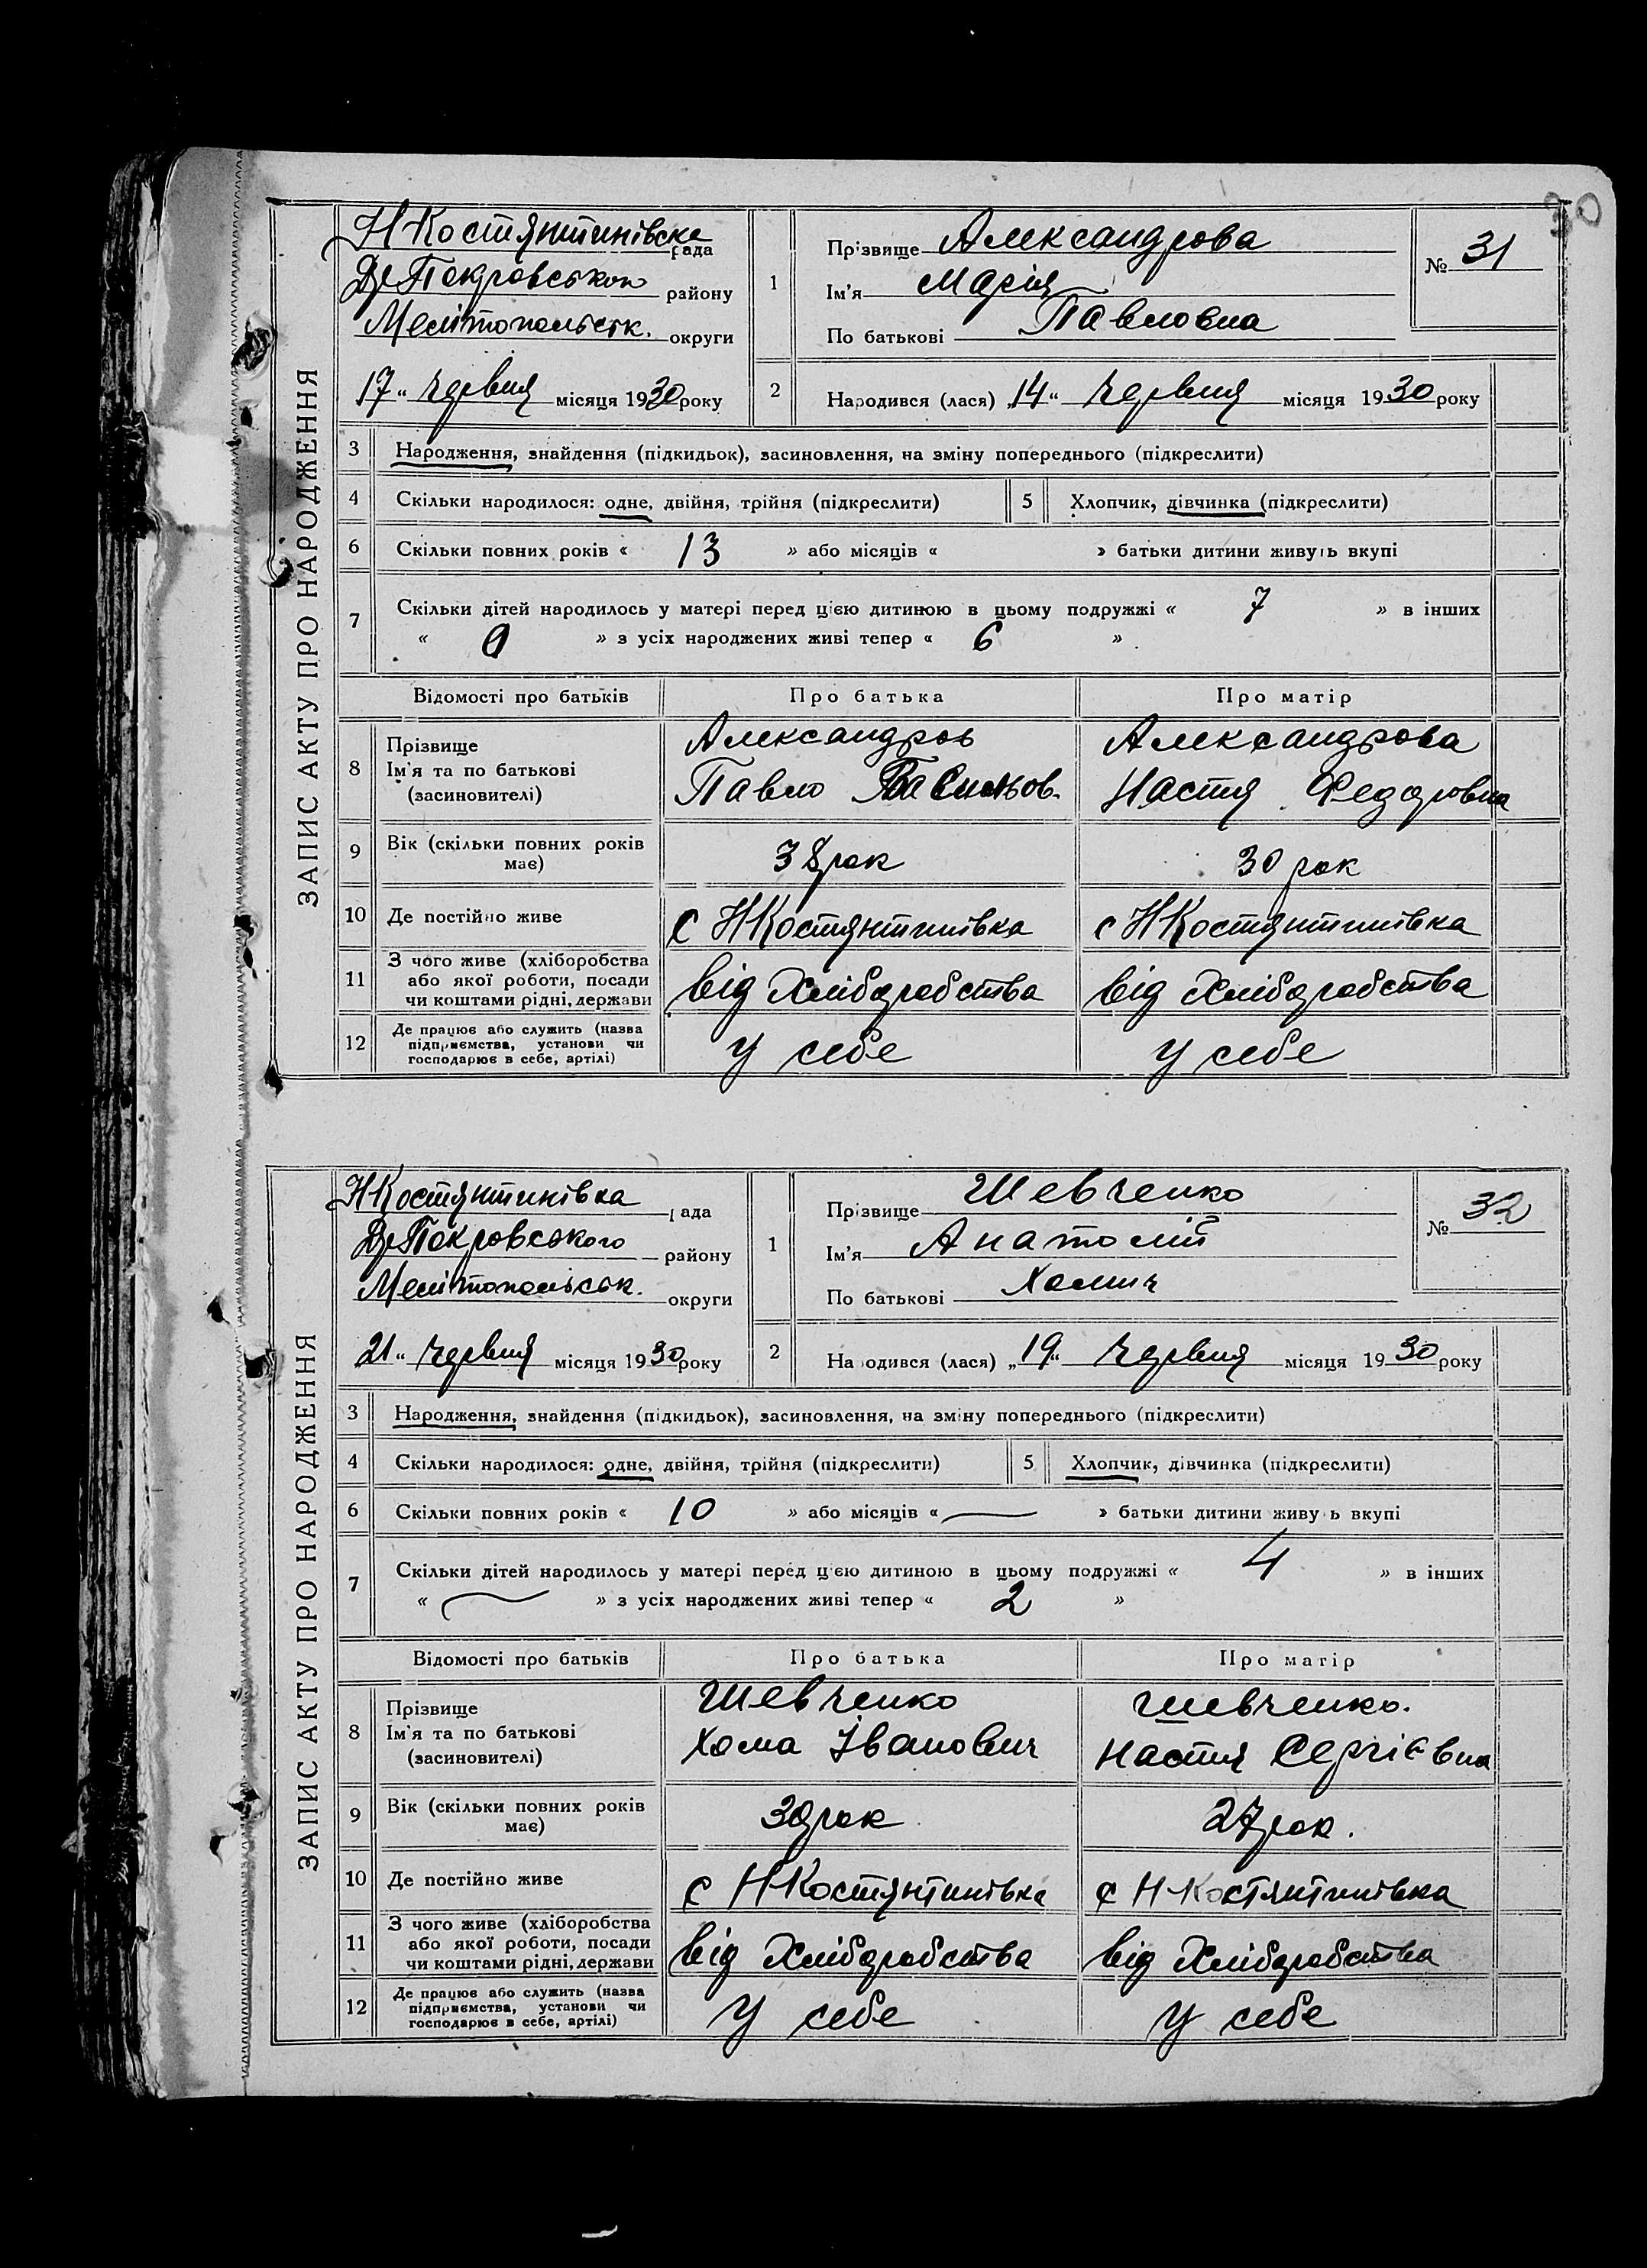 30
ЗАПИС АКТУ ПРО НАРОДЖЕННЯ
Н Костянтинівська рада
Др Покровського району
Мелітопольськ. округи
17 " червня місяця 1930 року
1 Прізвище Александрова
Ім'я Марія
По батькові Павловна
№ 31
2 Народився (лася) „14" червня місяця 1930 року
3 Народження, знайдення (підкидьок), засиновлення, на зміну попереднього (підкреслити)
4 Скільки народилося: одне, двійня, трійня (підкреслити) 5 Хлопчик, дівчинка (підкреслити)
6 Скільки повних років « 13 » або місяців « » батьки дитини живуть вкупі
7 Скільки дітей народилось у матері перед цією дитиною в цьому подружжі « 7 » в інших
« 0 » з усіх народжених живі тепер « 6 »
Відомості про батьків Про батька Про матір
8 Прізвище Александров Александрова
Ім'я та по батькові Павло Васильов. Настя Федоровна
(засиновителі)
9 Вік (скільки повних років має) 38 рок 30 рок
10 Де постійно живе с Н Костянтинівка с Н Костянтинівка
11 З чого живе (хліборобства
або якої роботи, посади
чи коштами рідні, держави від Хліборобства від Хліборобства
12 Де працює або служить (назва
підприємства, установи чи
господарює в себе, артілі) У себе У себе
ЗАПИС АКТУ ПРО НАРОДЖЕННЯ
Н Костянтинівка рада
Др Покровського району
Мелітопольськ. округи
21 " червня місяця 1930 року
1 Прізвище Шевченко
Ім'я Анатолій
По батькові Хомич
№ 32
2 Народився (лася) „19" червня місяця 1930 року
3 Народження, знайдення (підкидьок), засиновлення, на зміну попереднього (підкреслити)
4 Скільки народилося: одне, двійня, трійня (підкреслити) 5 Хлопчик, дівчинка (підкреслити)
6 Скільки повних років « 10 » або місяців « — » батьки дитини живуть вкупі
7 Скільки дітей народилось у матері перед цією дитиною в цьому подружжі « 4 » в інших
« — » з усіх народжених живі тепер « 2 »
Відомості про батьків Про батька Про матір
8 Прізвище Шевченко Шевченко.
Ім'я та по батькові Хома Іванович Настя Сергієвна
(засиновителі)
9 Вік (скільки повних років має) 30 рок 27 рок.
10 Де постійно живе с Н Костянтинівка с Н Костянтинівка
11 З чого живе (хліборобства
або якої роботи, посади
чи коштами рідні, держави від Хліборобства від Хліборобства
12 Де працює або служить (назва
підприємства, установи чи
господарює в себе, артілі) У себе У себе